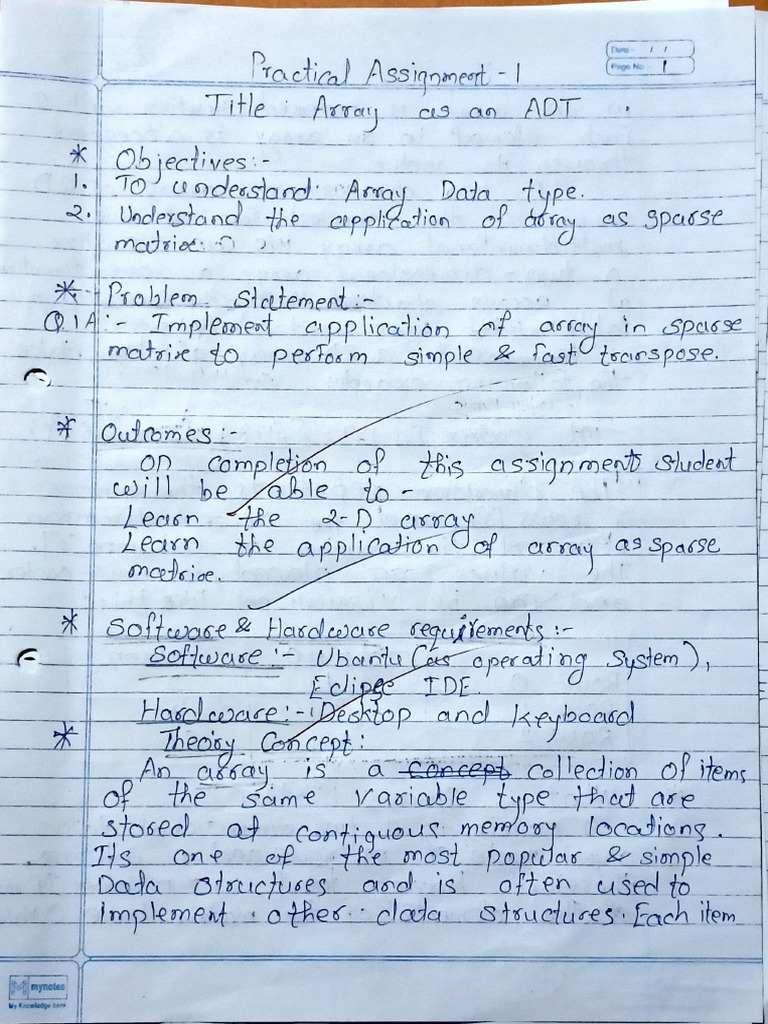 Date:- / /
Page No:- 1
Practical Assignment - 1
Title : Array as an ADT .
* Objectives:-
1. To understand Array Data type.
2. Understand the application of array as sparse
matrix.
* Problem Statement:-
Q.1A:- Implement application of array in sparse
matrix to perform simple & fast transpose.
* Outcomes:-
On completion of this assignment student
will be able to -
Learn the 2-D array
Learn the application of array as sparse
matrix.
* Software & Hardware requirements:-
Software:- Ubantu (as operating system),
Eclipse IDE.
Hardware:- Desktop and keyboard
* Theory Concept:
An array is a concept collection of items
of the same variable type that are
stored at contiguous memory locations.
Its one of the most popular & simple
Data structures and is often used to
implement other data structures. Each item
mynotes
My Knowledge bank